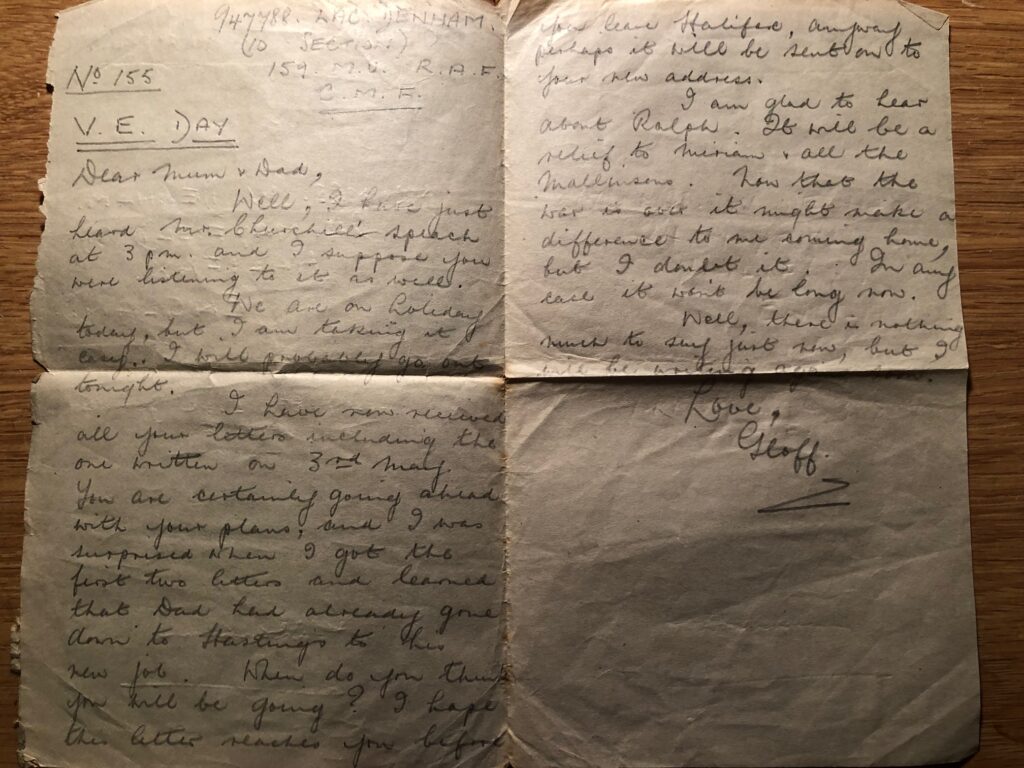 947788. LAC. DENHAM.
(10 SECTION.)
159. M.U. R.A.F.
C.M.F.
No 155
V. E. DAY
Dear Mum & Dad,
Well, I have just
heard Mr. Churchill's speach
at 3 pm. and I suppose you
were listening to it as well.
We are on holiday
today, but I am taking it
easy. I will probably go out
tonight.
I have now received
all your letters including the
one written on 3rd May.
You are certainly going ahead
with your plans, and I was
surprised when I got the
first two letters and learned
that Dad had already gone
down to Hastings to his
new job. When do you think
you will be going? I hope
this letter reaches you before
you leave Halifax, anyway
perhaps it will be sent on to
your new address.
I am glad to hear
about Ralph. It will be a
relief to Miriam & all the
Mallinsons. Now that the
war is over it might make a
difference to me coming home,
but I doubt it. In any
case it won't be long now.
Well, there is nothing
much to say just now, but I
will be writing again soon.
Love,
Geoff.